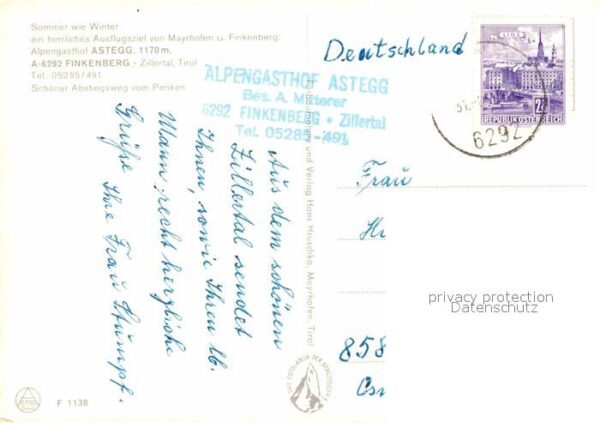 Sommer wie Winter
ein herrliches Ausflugsziel von Mayrhofen u. Finkenberg:
Alpengasthof ASTEGG, 1170 m,
A-6292 FINKENBERG - Zillertal, Tirol
Tel. 05285/491
Schöner Abstiegsweg vom Penken
ALPENGASTHOF ASTEGG
Bes. A. Mitterer
6292 FINKENBERG • Zillertal
Tel. 05285-491
Aus dem schönen
Zillertal sendet
Ihnen, sowie Ihren lb.
Mann recht herzliche
Grüße Ihre Frau Stumpf.
und Verlag Hans Hruschka, Mayrhofen, Tirol
Deutschland
LINZ
REPUBLIK ÖSTERREICH
6292
Frau
858
privacy protection
Datenschutz
F 1138